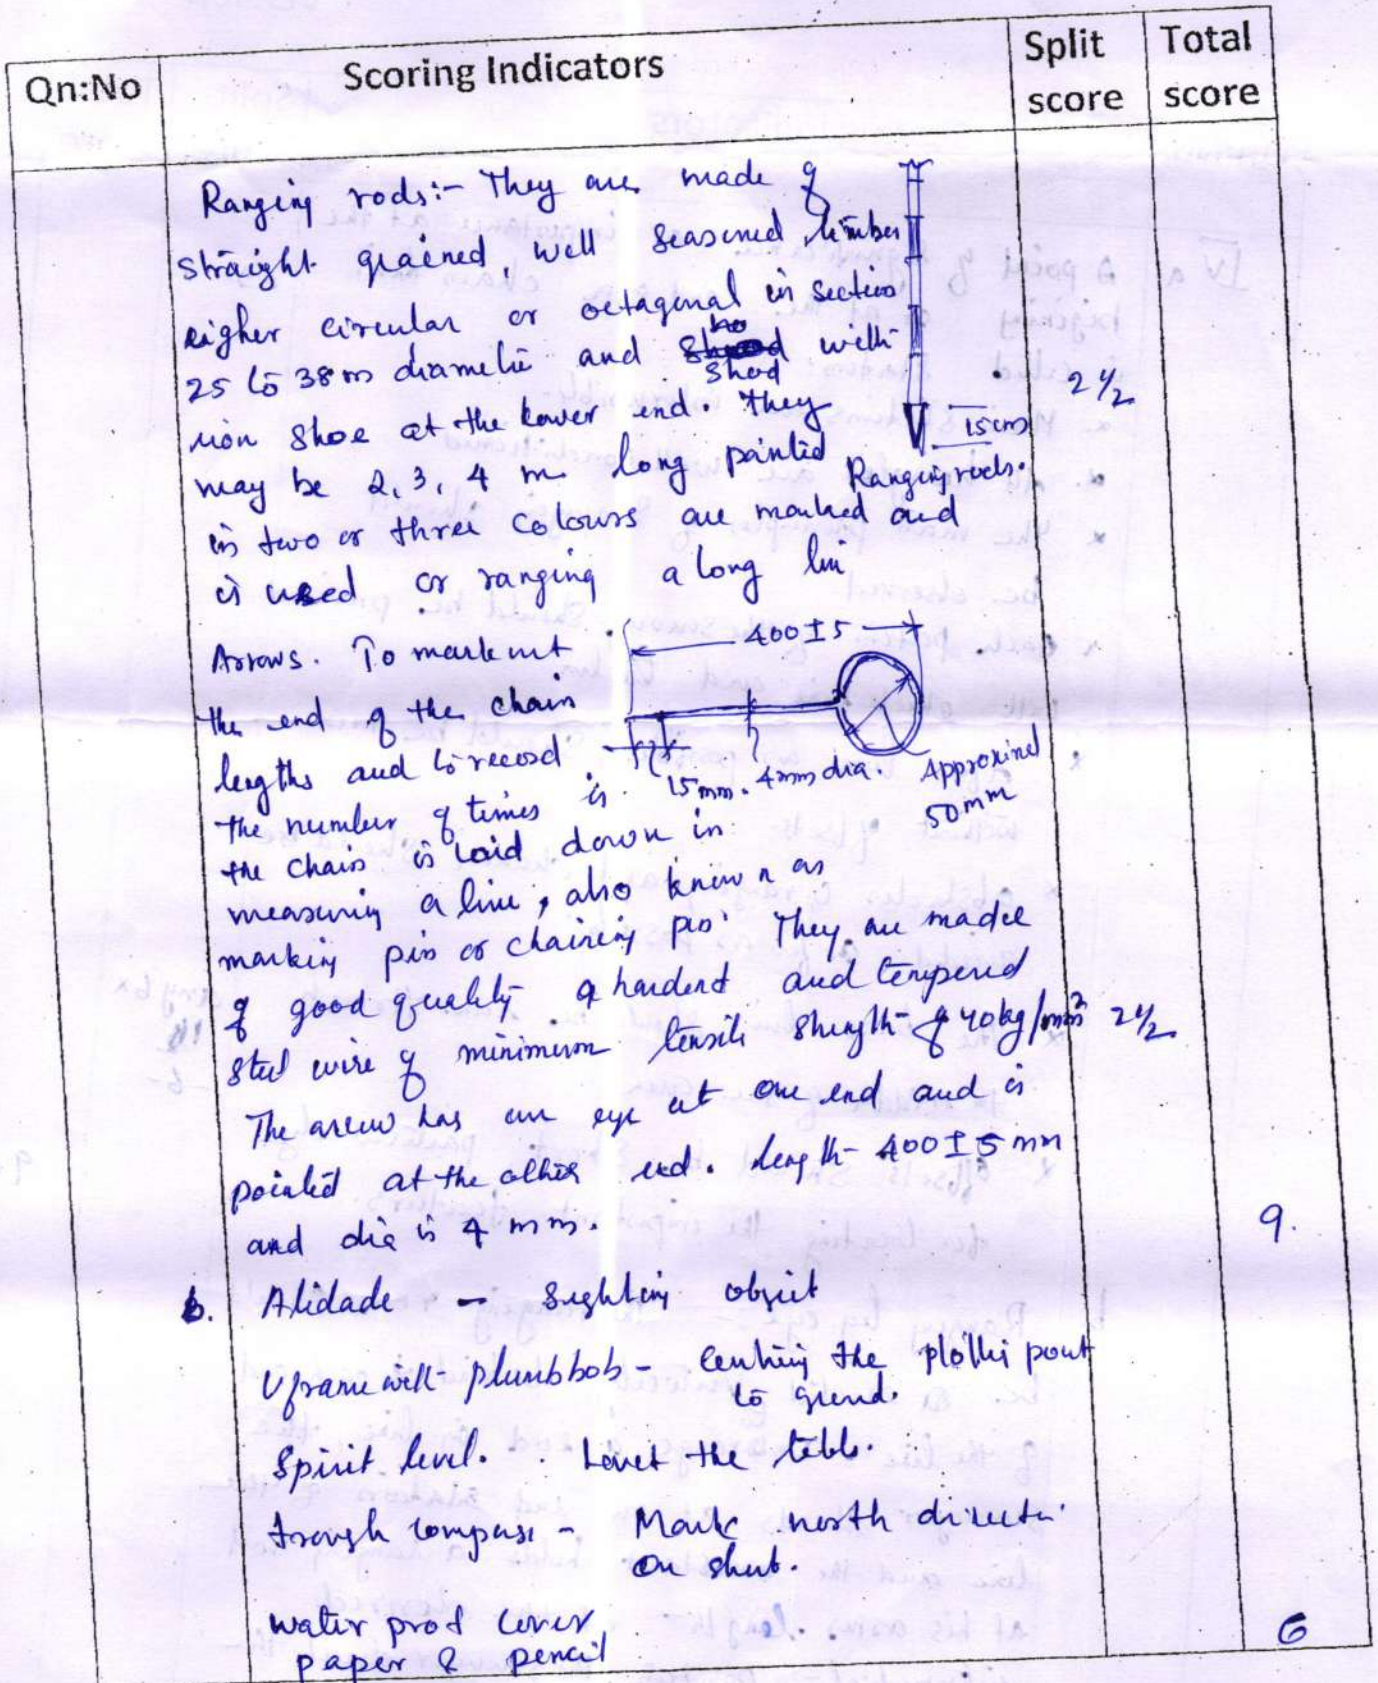 Qn:No Scoring Indicators Split score Total score
Ranging rods:- They are made of
straight grained, well seasoned timber
eigher circular or octagonal in section
25 to 38 m diametre and shod with
iron shoe at the lower end. They
may be 2, 3, 4 m long painted
in two or three colours are marked and
is used or ranging along lin
15 cm
Ranging rods.
2 1/2
Arrows. To mark out
the end of the chain
lengths and to record
the number of times is
the chain is laid down in
measuring a line, also known as
marking pin or chaining pin They are made
of good quality hardend and tempered
steel wire of minimum tensile strength of 40kg/mm² 2 1/2
The arrow has an eye at one end and is
pointed at the other end. length 400 ± 5 mm
and dia is 4 mm.
400 ± 5
15 mm. 4mm dia. Approximat
50 mm
9.
b. Alidade - Sighting object
U frame with plumb bob -
to ground.
Spirit level. Level the table.
trough compass - Mark north directi
on sheet.
water prof cover
paper & pencil
6